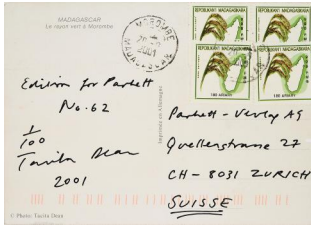 MADAGASCAR
Le rayon vert à Morombe.
MOROMBE
2001
MADAGASCAR
REPUBLIKAN'I MADAGASIKARA
REPUBLIKAN'I MADAGASIKARA
REPUBLIKAN'I MADAGASIKARA
REPUBLIKAN'I MADAGASIKARA
ARIARY
ARIARY
Edition for Parkett
No. 62
1/100
Tacita Dean
2001
Imprimée en Allemagne
Parkett - Verlag AG
Quellenstrasse 27
CH - 8031 ZURICH
SUISSE
© Photo: Tacita Dean